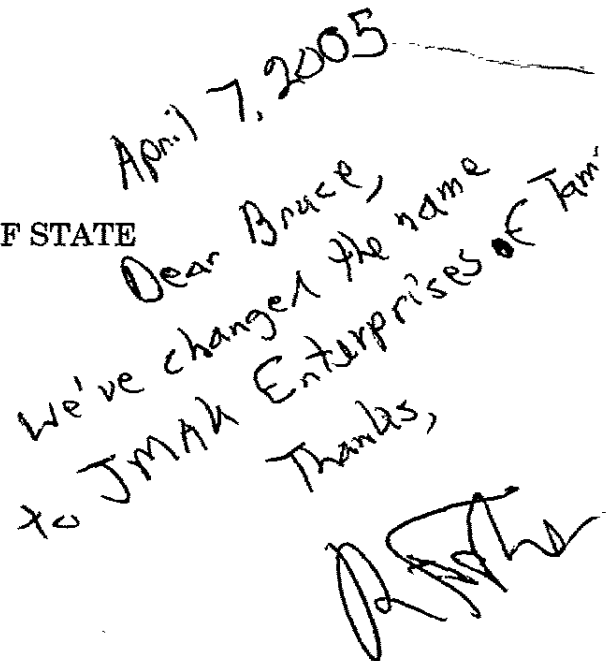 April 7, 2005
F STATE
Dear Bruce,
We've changed the name
to JMAK Enterprises of Tam
Thanks,